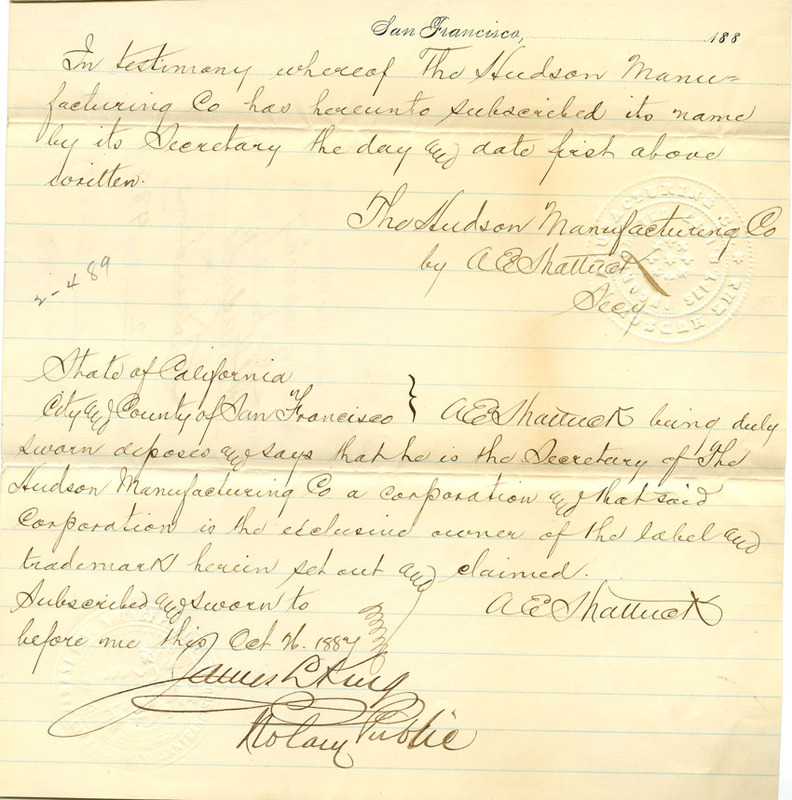 San Francisco, 188
In testimony whereof The Hudson Manu=
facturing Co has hereunto subscribed its name
by its Secretary the day and date first above
written.
The Hudson Manufacturing Co
by A E Shattuck
Secy
2-4 89
State of California
City and County of San Francisco } A E Shattuck being duly
sworn deposes and says that he is the Secretary of The
Hudson Manufacturing Co a corporation and that said
Corporation is the exclusive owner of the label and
trademark herein set out and claimed.
Subscribed and sworn to A E Shattuck
before me this Oct 26. 1887
James L King
Notary Public